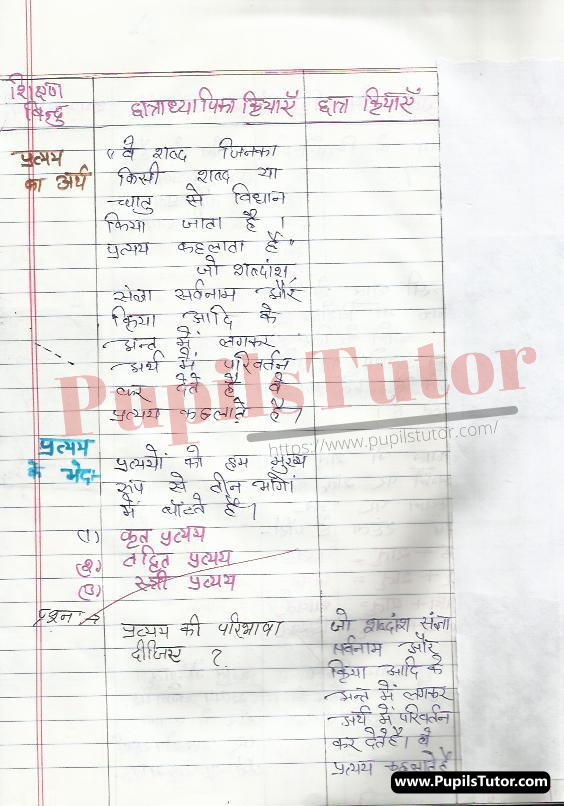 शिक्षण
बिन्दु
छात्राध्यापिका क्रियाएँ
छात्रा क्रियाएँ
प्रत्यय
का अर्थ
"वे शब्द जिनका
किसी शब्द या
धातु से विधान
किया जाता है ।
प्रत्यय कहलाता है"
जो शब्दांश
संज्ञा सर्वनाम और
क्रिया आदि के
अन्त में लगकर
अर्थ में परिवर्तन
कर देते है वे
प्रत्यय कहलाते है।
PupilsTutor
https://www.pupilstutor.com/
प्रत्यय
के भेद-
प्रत्ययों को हम मुख्य
रूप से तीन भागों
में बाँटते है।
(1) कृत प्रत्यय
(2) तद्धित प्रत्यय
(3) स्त्री प्रत्यय
प्रश्न:→
प्रत्यय की परिभाषा
दीजिए ?
जो शब्दांश संज्ञा
सर्वनाम और
क्रिया आदि के
अन्त में लगकर
अर्थ में परिवर्तन
कर देते है। वे
प्रत्यय कहलाते है
www.PupilsTutor.com